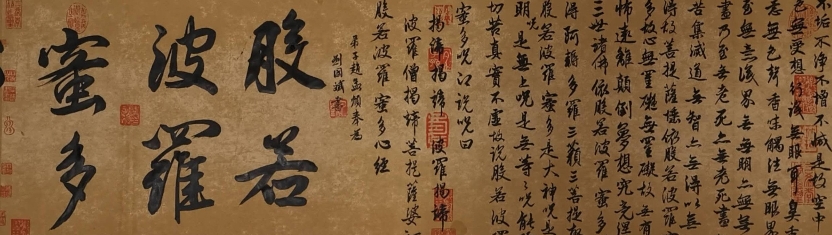 不垢不净不增不減是故空中
色無受想行識無眼耳鼻舌
無色聲香味觸法無眼界
至無意識界無無明亦無無
盡乃至無老死亦無老死盡
苦集滅道無智亦無得以無
得故菩提薩埵依般若波羅
多故心無罣礙無罣礙故無有
怖遠離顛倒夢想究竟涅
三世諸佛依般若波羅蜜多
得阿耨多羅三藐三菩提
般若波羅蜜多是大神咒是
明咒是無上咒是無等々咒能
切苦真實不虛故說般若波
蜜多咒即說咒曰
揭諦揭諦 波羅揭諦
波羅僧揭諦菩提薩婆訶
般若波羅蜜多心經
弟子趙孟頫奉為
劉國斌書
般若
波羅
蜜多